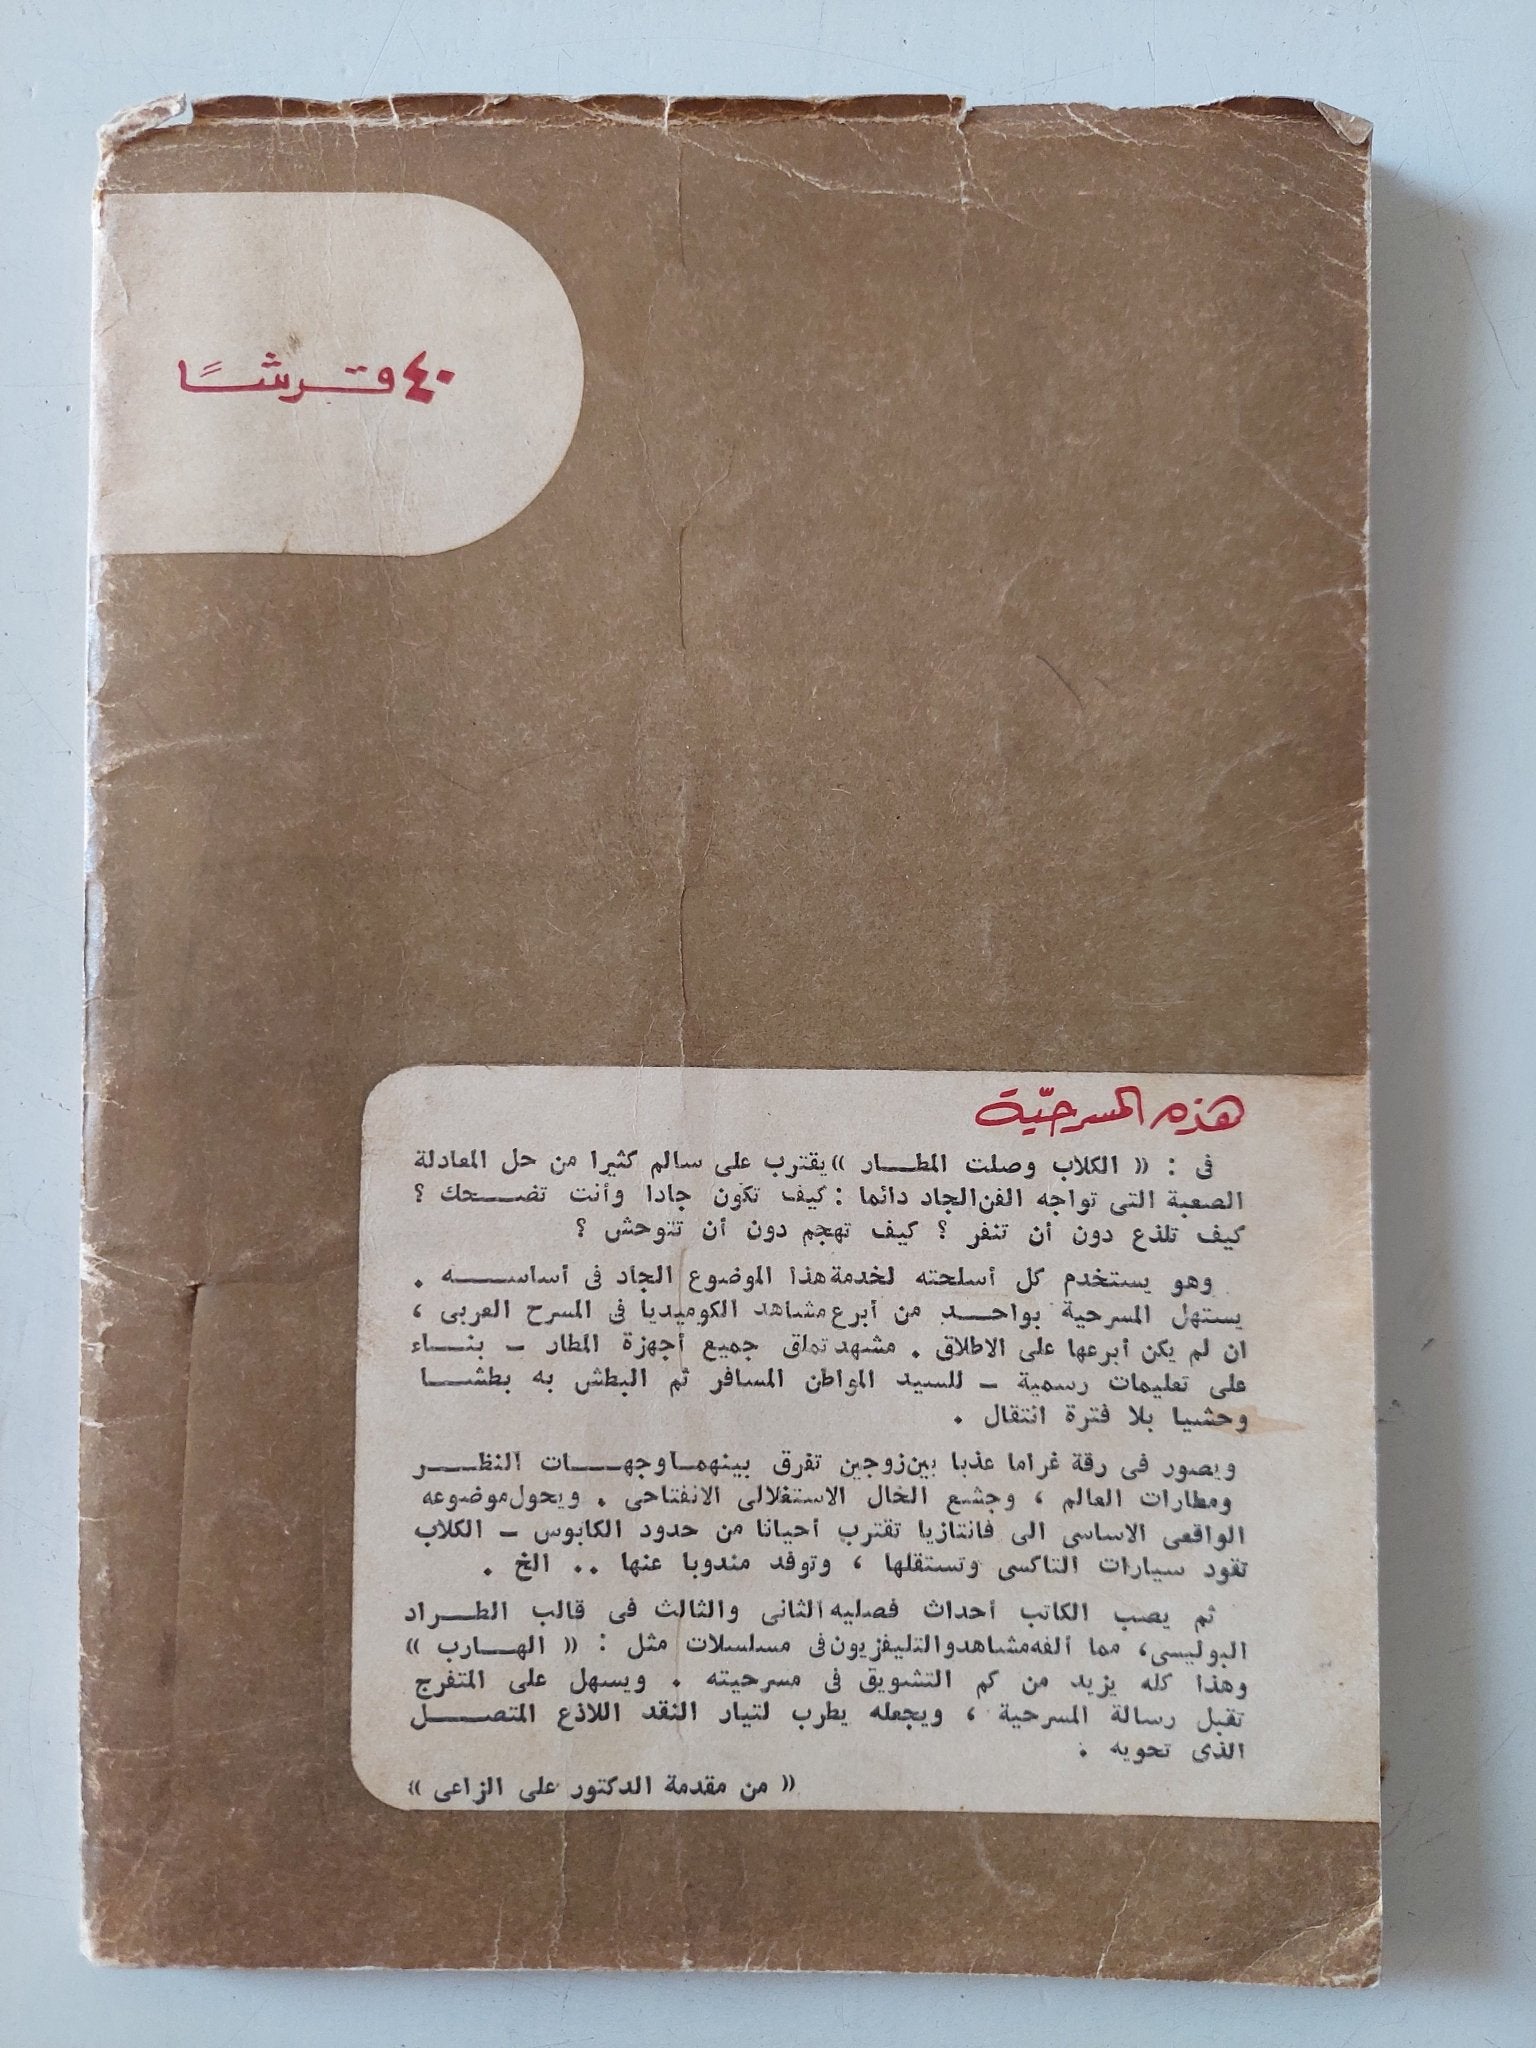 ٤٠ قرشًا
هذه المسرحيّة
فى : (( الكلاب وصلت المطــار )) يقترب على سالم كثيرا من حل المعادلة
الصعبة التى تواجه الفن الجاد دائما : كيف تكون جادا وأنت تضــحك ؟
كيف تلذع دون أن تنفر ؟ كيف تهجم دون أن تتوحش ؟
وهو يستخدم كل أسلحته لخدمة هذا الموضوع الجاد فى أساســـه .
يستهل المسرحية بواحــد من أبرع مشاهد الكوميديا فى المسرح العربى ،
ان لم يكن أبرعها على الاطلاق . مشهد تملق جميع أجهزة المطار ــ بنــاء
على تعليمات رسمية ــ للسيد المواطن المسافر ثم البطش به بطشــا
وحشيا بلا فترة انتقال .
ويصور فى رقة غراما عذبا بين زوجين تفرق بينهمــا وجهــات النظــر
ومطارات العالم ، وجشع الخال الاستغلالى الانفتاحى . ويحول موضوعه
الواقعى الاساسى الى فانتازيا تقترب أحيانا من حدود الكابوس ــ الكلاب
تقود سيارات التاكسى وتستقلها ، وتوفد مندوبا عنها .. الخ .
ثم يصب الكاتب أحداث فصليه الثانى والثالث فى قالب الطــراد
البوليسى، مما ألفه مشاهدو التليفزيون فى مسلسلات مثل : (( الهــارب ))
وهذا كله يزيد من كم التشويق فى مسرحيته . ويسهل على المتفرج
تقبل رسالة المسرحية ، ويجعله يطرب لتيار النقد اللاذع المتصــل
الذى تحويه .
(( من مقدمة الدكتور على الراعى ))